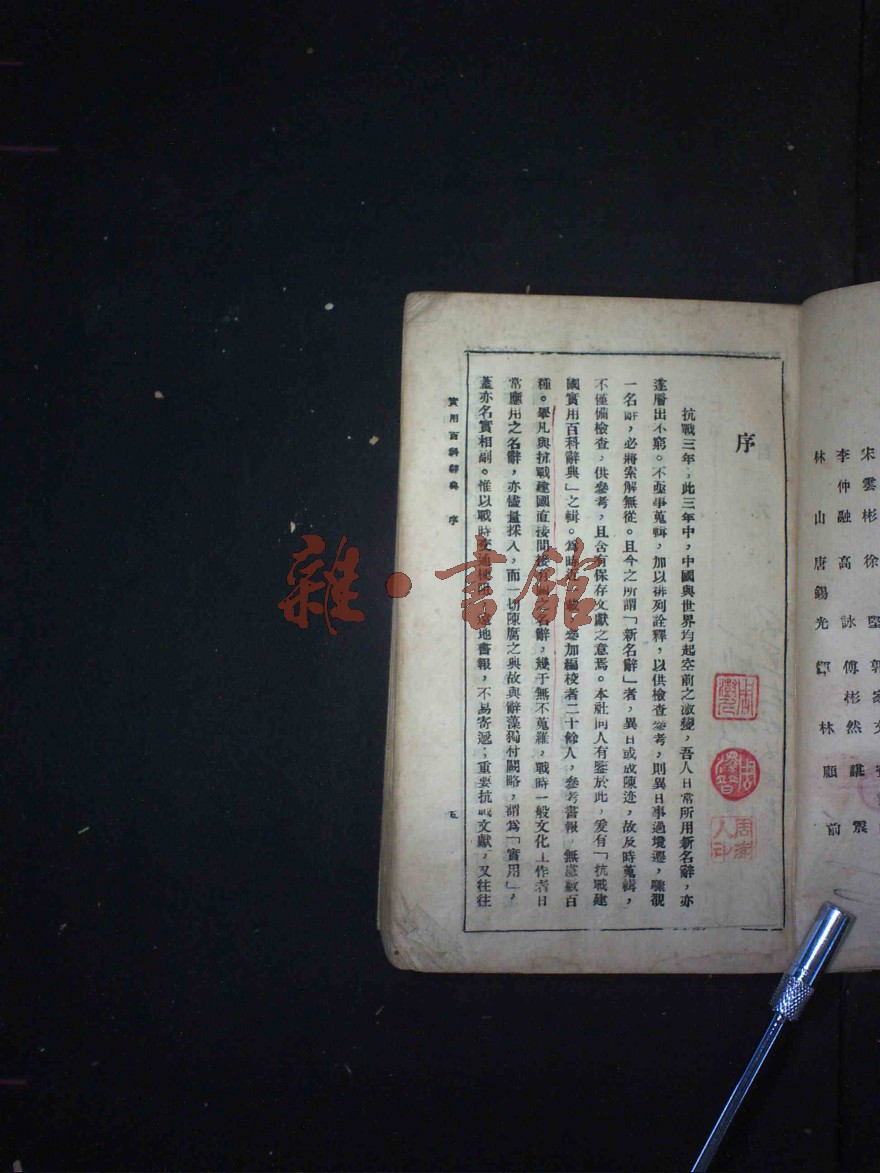 宋雲彬 徐
李仲融 高詠 傅彬然
林山 唐錫光 林 顧 前
序
抗戰三年,此三年中,中國與世界均起空前之激變,吾人日常所用新名辭,亦
遂層出不窮。不亟事蒐輯,加以排列詮釋,以供檢查參考,則異日事過境遷,驟覩
一名辭,必將索解無從。且今之所謂「新名辭」者,異日或成陳迹,故及時蒐輯,
不僅備檢查,供參考,且含有保存文獻之意焉。本社同人有鑒於此,爰有「抗戰建
國實用百科辭典」之輯。為時近 參加編校者二十餘人,參考書報,無慮數百
種。舉凡與抗戰建國直接間接有關之名辭,幾于無不蒐羅,戰時一般文化工作者日
常應用之名辭,亦儘量採入,而一切陳腐之典故與辭藻獨付闕略,謂為「實用」,
蓋亦名實相副。惟以戰時交通梗阻,遠地書報,不易寄遞;重要抗戰文獻,又往往
實用百科辭典 序 五
雜·書館